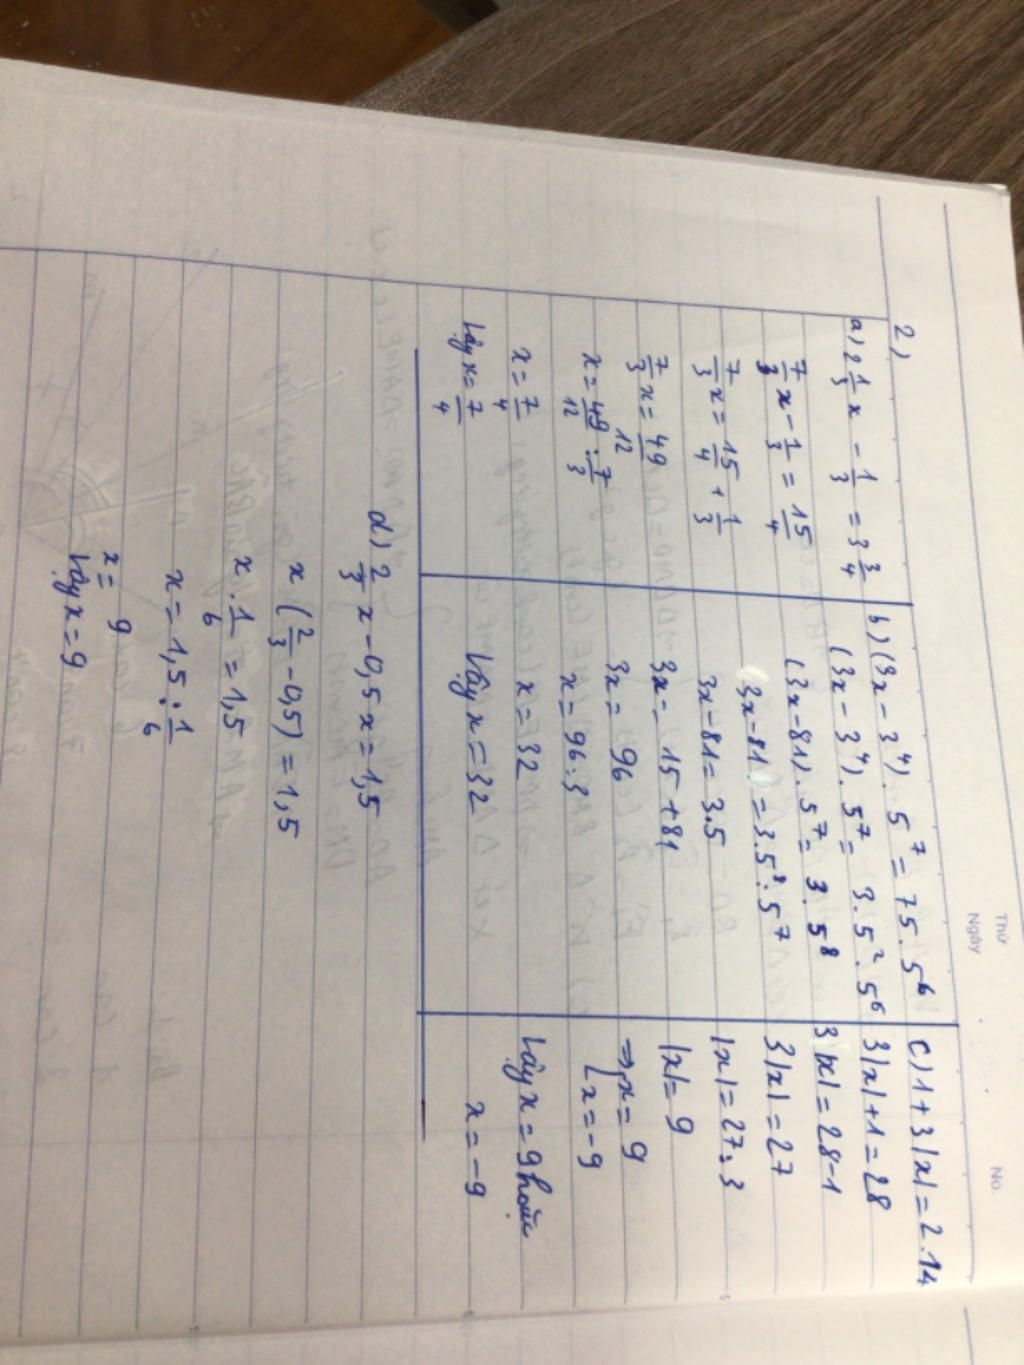 Thứ
Ngày
No.
2)
a) 2 1/3 x - 1/3 = 3 3/4
7/3 x - 1/3 = 15/4
7/3 x = 15/4 + 1/3
7/3 x = 49/12
x = 49/12 : 7/3
x = 7/4
Vậy x = 7/4
b) (3x - 3⁴) . 5⁷ = 75 . 5⁶
(3x - 3⁴) . 5⁷ = 3 . 5² . 5⁶
(3x - 81) . 5⁷ = 3 . 5⁸
3x - 81 = 3 . 5⁸ : 5⁷
3x - 81 = 3 . 5
3x = 15 + 81
3x = 96
x = 96 : 3
x = 32
Vậy x = 32
c) 1 + 3|x| = 2 . 14
3|x| + 1 = 28
3|x| = 28 - 1
3|x| = 27
|x| = 27 : 3
|x| = 9
⇒ [x = 9
[x = -9
Vậy x = 9 hoặc
x = -9
d) 2/3 x - 0,5 x = 1,5
x (2/3 - 0,5) = 1,5
x . 1/6 = 1,5
x = 1,5 : 1/6
x = 9
Vậy x = 9